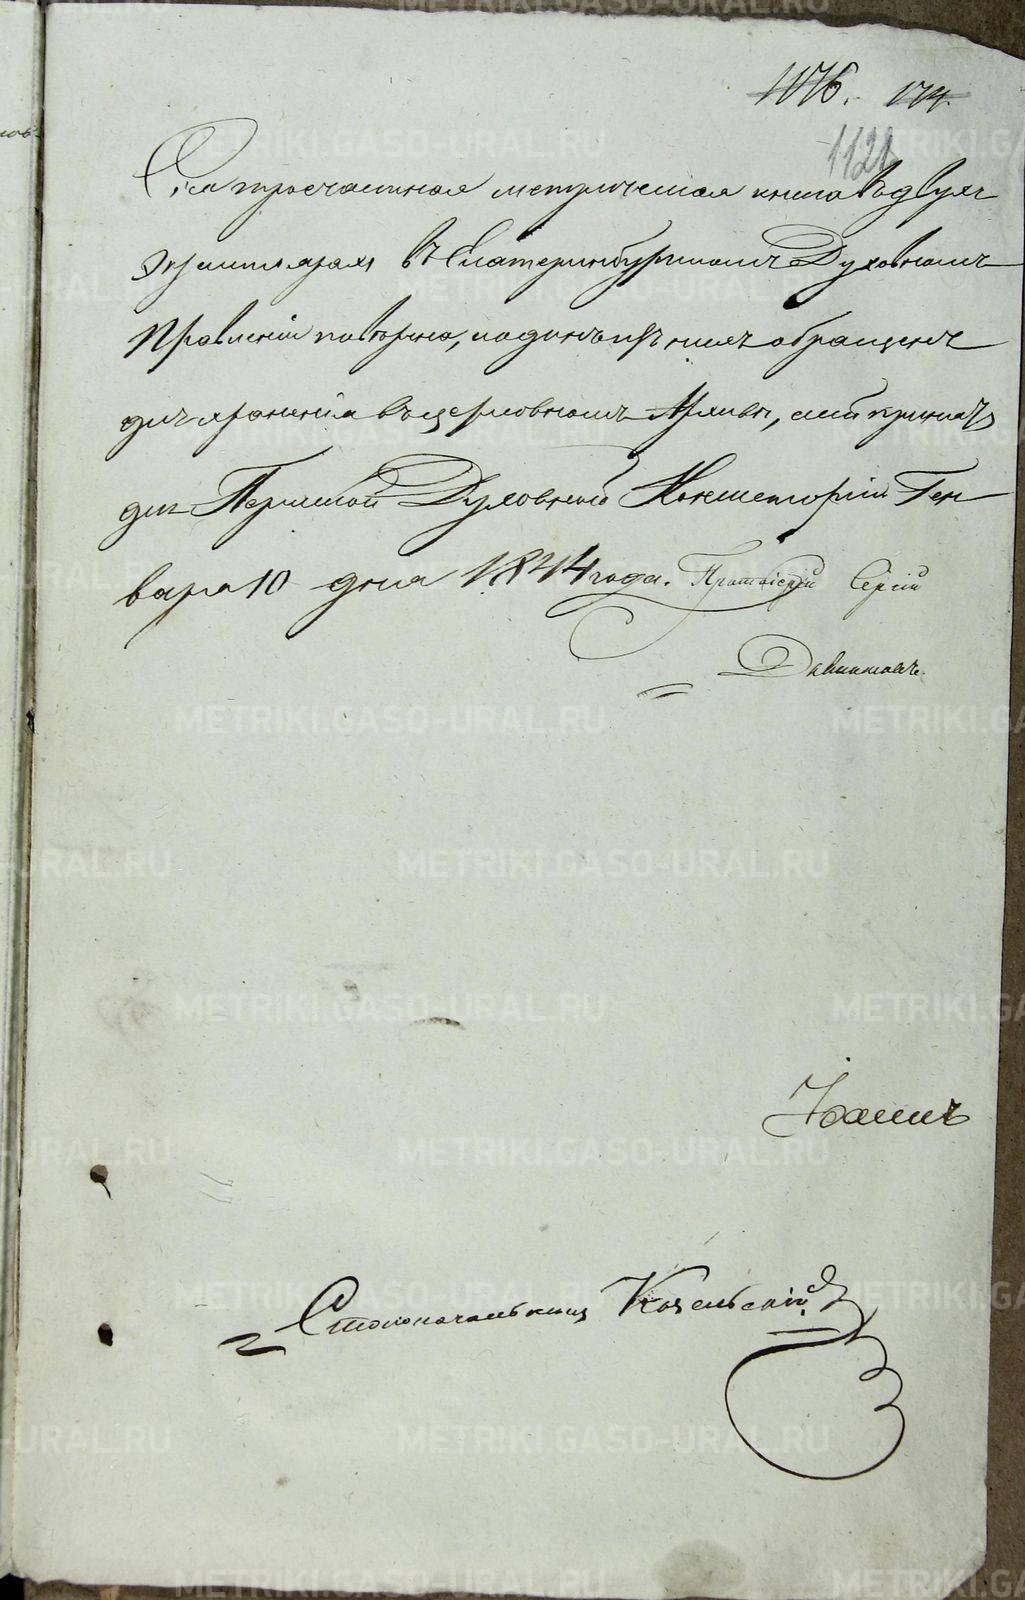 1076. 174.
1121
Сія троечастная метрическая книга въ двухъ
экземплярахъ въ Екатеринбургскомъ Духовномъ
Правленіи повѣрена, и одинъ изъ нихъ обращенъ
для храненія въ церковномъ Архивѣ, а сей принятъ
для Пермской Духовной Консисторіи Ген
варя 10 дня 1844 года. Протоіерей Сергій
Столоначальникъ
METRIKI.GASO-URAL.RU